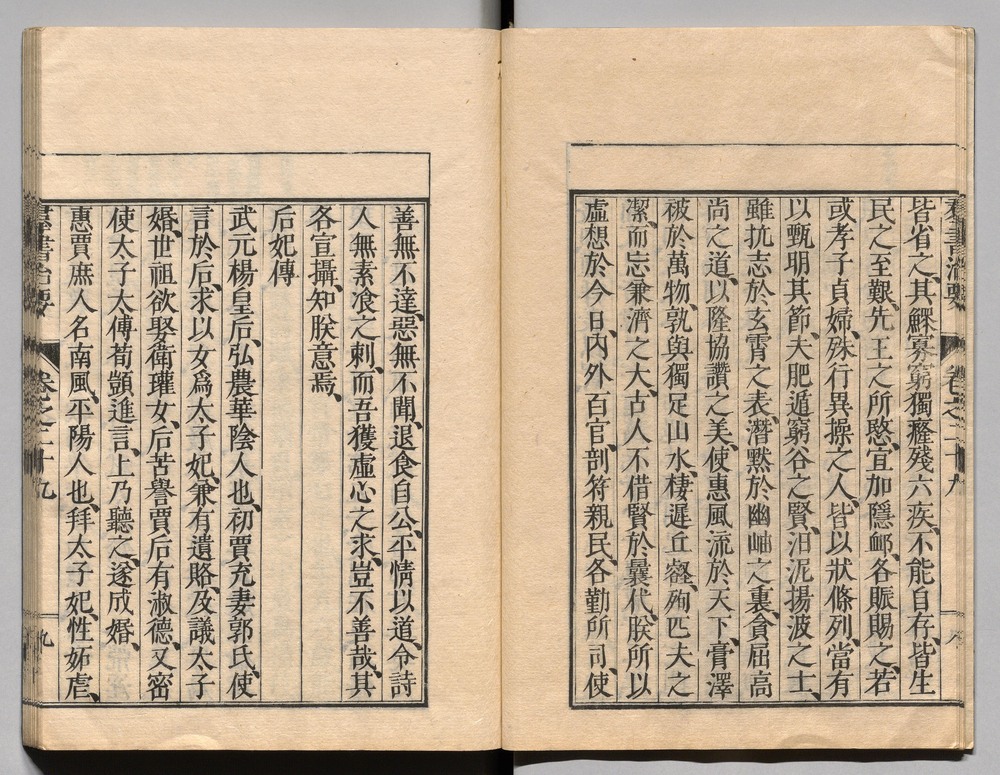 羣書治要 卷之二十九 八
皆省之、其鰥寡窮獨癃殘六疾、不能自存、皆生
民之至艱、先王之所愍、宜加隱䘏、各賑賜之、若
或孝子貞婦、殊行異操之人、皆以狀條列、當有
以甄明其節、夫肥遁窮谷之賢、汨泥揚波之士、
雖抗志於玄霄之表、潛默於幽岫之裏、貪屈高
尚之道、以隆協讚之美、使惠風流於天下、膏澤
被於萬物、孰與獨足山水、棲遲丘壑、殉匹夫之
潔、而忘兼濟之大、古人不借賢於曩代、朕所以
虛想於今日、內外百官、剖符親民、各勤所司、使
善無不達、惡無不聞、退食自公、平情以道、令詩
人無素飡之刺、而吾獲虛心之求、豈不善哉、其
各宣攝、知朕意焉、
后妃傳
武元楊皇后、弘農華陰人也、初賈充妻郭氏、使
言於后、求以女爲太子妃、兼有遺賂、及議太子
婚、世祖欲娶衛瓘女、后苦譽賈后有淑德、又密
使太子太傅荀顗進言、上乃聽之、遂成婚、
惠賈庶人名南風、平陽人也、拜太子妃、性妬虐、
羣書治要 卷之二十九 九